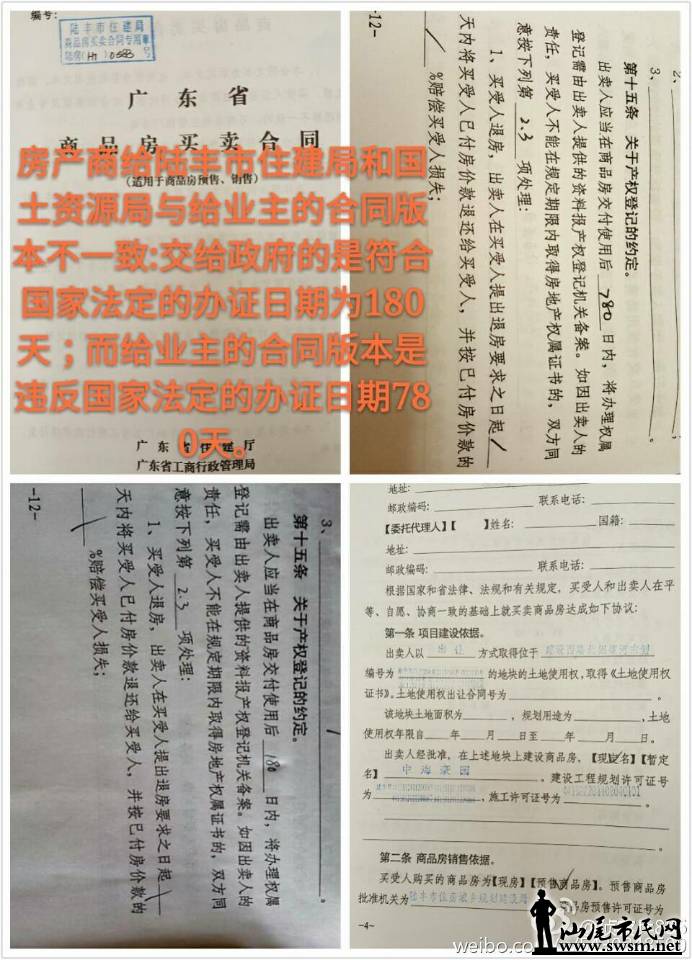 编号：
陆丰市住建局
商品房买卖合同专用章
广东省
商品房买卖合同
(适用于商品房预售、销售)
房产商给陆丰市住建局和国
土资源局与给业主的合同版
本不一致:交给政府的是符合
国家法定的办证日期为180
天；而给业主的合同版本是
违反国家法定的办证日期78
0天。
广东省住建厅
广东省工商行政管理局
2、
3、
第十五条 关于产权登记的约定。
出卖人应当在商品房交付使用后 780 日内，将办理权属
登记需由出卖人提供的资料报产权登记机关备案。如因出卖人的
责任，买受人不能在规定期限内取得房地产权属证书的，双方同
意按下列第 2.3 项处理：
1、买受人退房，出卖人在买受人提出退房要求之日起 /
天内将买受人已付房价款退还给买受人，并按已付房价款的
/ %赔偿买受人损失；
-12-
3、
第十五条 关于产权登记的约定。
出卖人应当在商品房交付使用后 180 日内，将办理权属
登记需由出卖人提供的资料报产权登记机关备案。如因出卖人的
责任，买受人不能在规定期限内取得房地产权属证书的，双方同
意按下列第 2.3 项处理：
1、买受人退房，出卖人在买受人提出退房要求之日起 /
天内将买受人已付房价款退还给买受人，并按已付房价款的
/ %赔偿买受人损失；
-12-
地址：
邮政编码： 联系电话：
【委托代理人】【 】姓名： 国籍：
地址：
邮政编码： 联系电话：
根据国家和省法律、法规和有关规定，买受人和出卖人在平
等、自愿、协商一致的基础上就买卖商品房达成如下协议：
第一条 项目建设依据。
出卖人以 出让 方式取得位于
编号为 的地块的土地使用权，取得《土地使用权
证书》。土地使用权出让合同号为 。
该地块土地面积为 ，规划用途为 ，土地
使用权年限自 年 月 日至 年 月 日。
出卖人经批准，在上述地块上建设商品房，【现定名】【暂定
名】 中海豪园 。建设工程规划许可证号
为 ，施工许可证号为 。
第二条 商品房销售依据。
买受人购买的商品房为【现房】【预售商品房】。预售商品房
批准机关为 陆丰市住房城乡规划建设局 商品房预售许可证号为
-4-
weibo.co
汕尾市民网
www.swsm.net